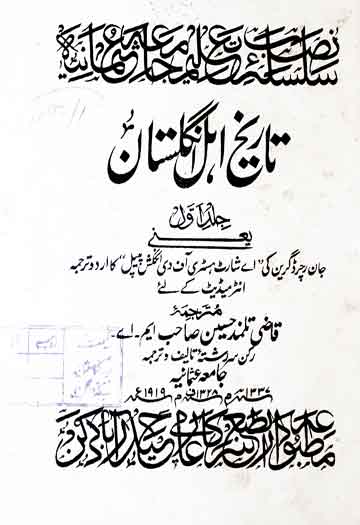 سلسلۂ نصاب تعلیم جامعۂ عثمانیہ
تاریخ اہل انگلستان
جلد اول
یعنی
جان رچرڈ گرین کی "اے شارٹ ہسٹری آف دی انگلش پیپل" کا اردو ترجمہ
انٹرمیڈیٹ کے لئے
مترجمۂ
قاضی تلمذ حسین صاحب ایم۔ اے۔
رکن سررشتۂ تالیف و ترجمہ
جامعہ عثمانیہ
۱۳۳۷ھ م ۱۳۲۸ف م ۱۹۱۹ع
مطبوعہ دار الطبع سرکار عالی حیدرآباد دکن